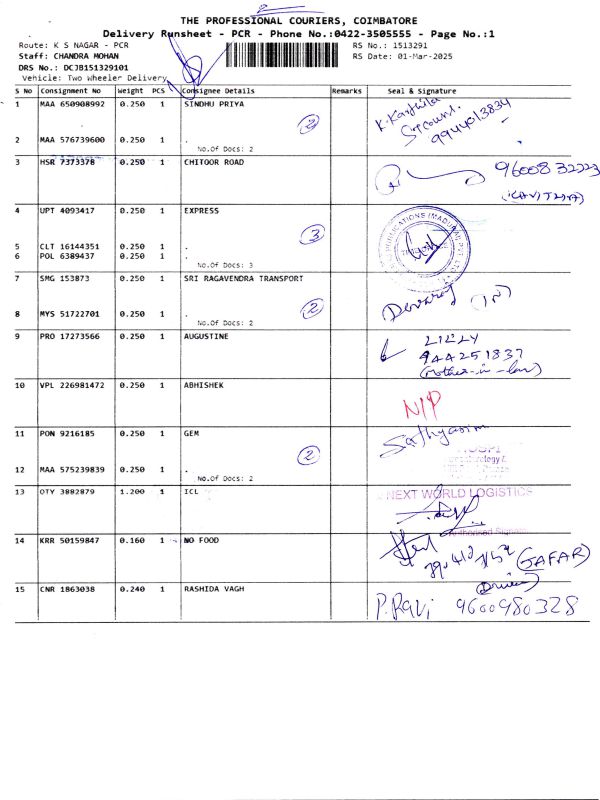 THE PROFESSIONAL COURIERS, COIMBATORE
Delivery Runsheet - PCR - Phone No.:0422-3505555 - Page No.:1
Route: K S NAGAR - PCR
RS No.: 1513291
Staff: CHANDRA MOHAN
RS Date: 01-Mar-2025
DRS No.: DCJB151329101
Vehicle: Two Wheeler Delivery
S No Consignment No Weight PCS Consignee Details Remarks Seal & Signature
1 MAA 650908992 0.250 1 SINDHU PRIYA
K. Karthika
9944013834
2
2 MAA 576739600 0.250 1 .
No.Of Docs: 2
3 HSR 7373378 0.250 1 CHITOOR ROAD
9600832223
(KAVITHA)
4 UPT 4093417 0.250 1 EXPRESS
3
5 CLT 16144351 0.250 1 .
6 POL 6389437 0.250 1 .
No.Of Docs: 3
7 SMG 153873 0.250 1 SRI RAGAVENDRA TRANSPORT
Devaraj
2
8 MYS 51722701 0.250 1 .
No.Of Docs: 2
9 PRO 17273566 0.250 1 AUGUSTINE
LILLY
944251837
(mother-in-law)
10 VPL 226981472 0.250 1 ABHISHEK
N/P
11 PON 9216185 0.250 1 GEM
2
12 MAA 575239839 0.250 1 .
No.Of Docs: 2
13 OTY 3882879 1.200 1 ICL
NEXT WORLD LOGISTICS
14 KRR 50159847 0.160 1 NO FOOD
(JAFAR)
15 CNR 1863038 0.240 1 RASHIDA VAGH
P. Ravi 9600980328